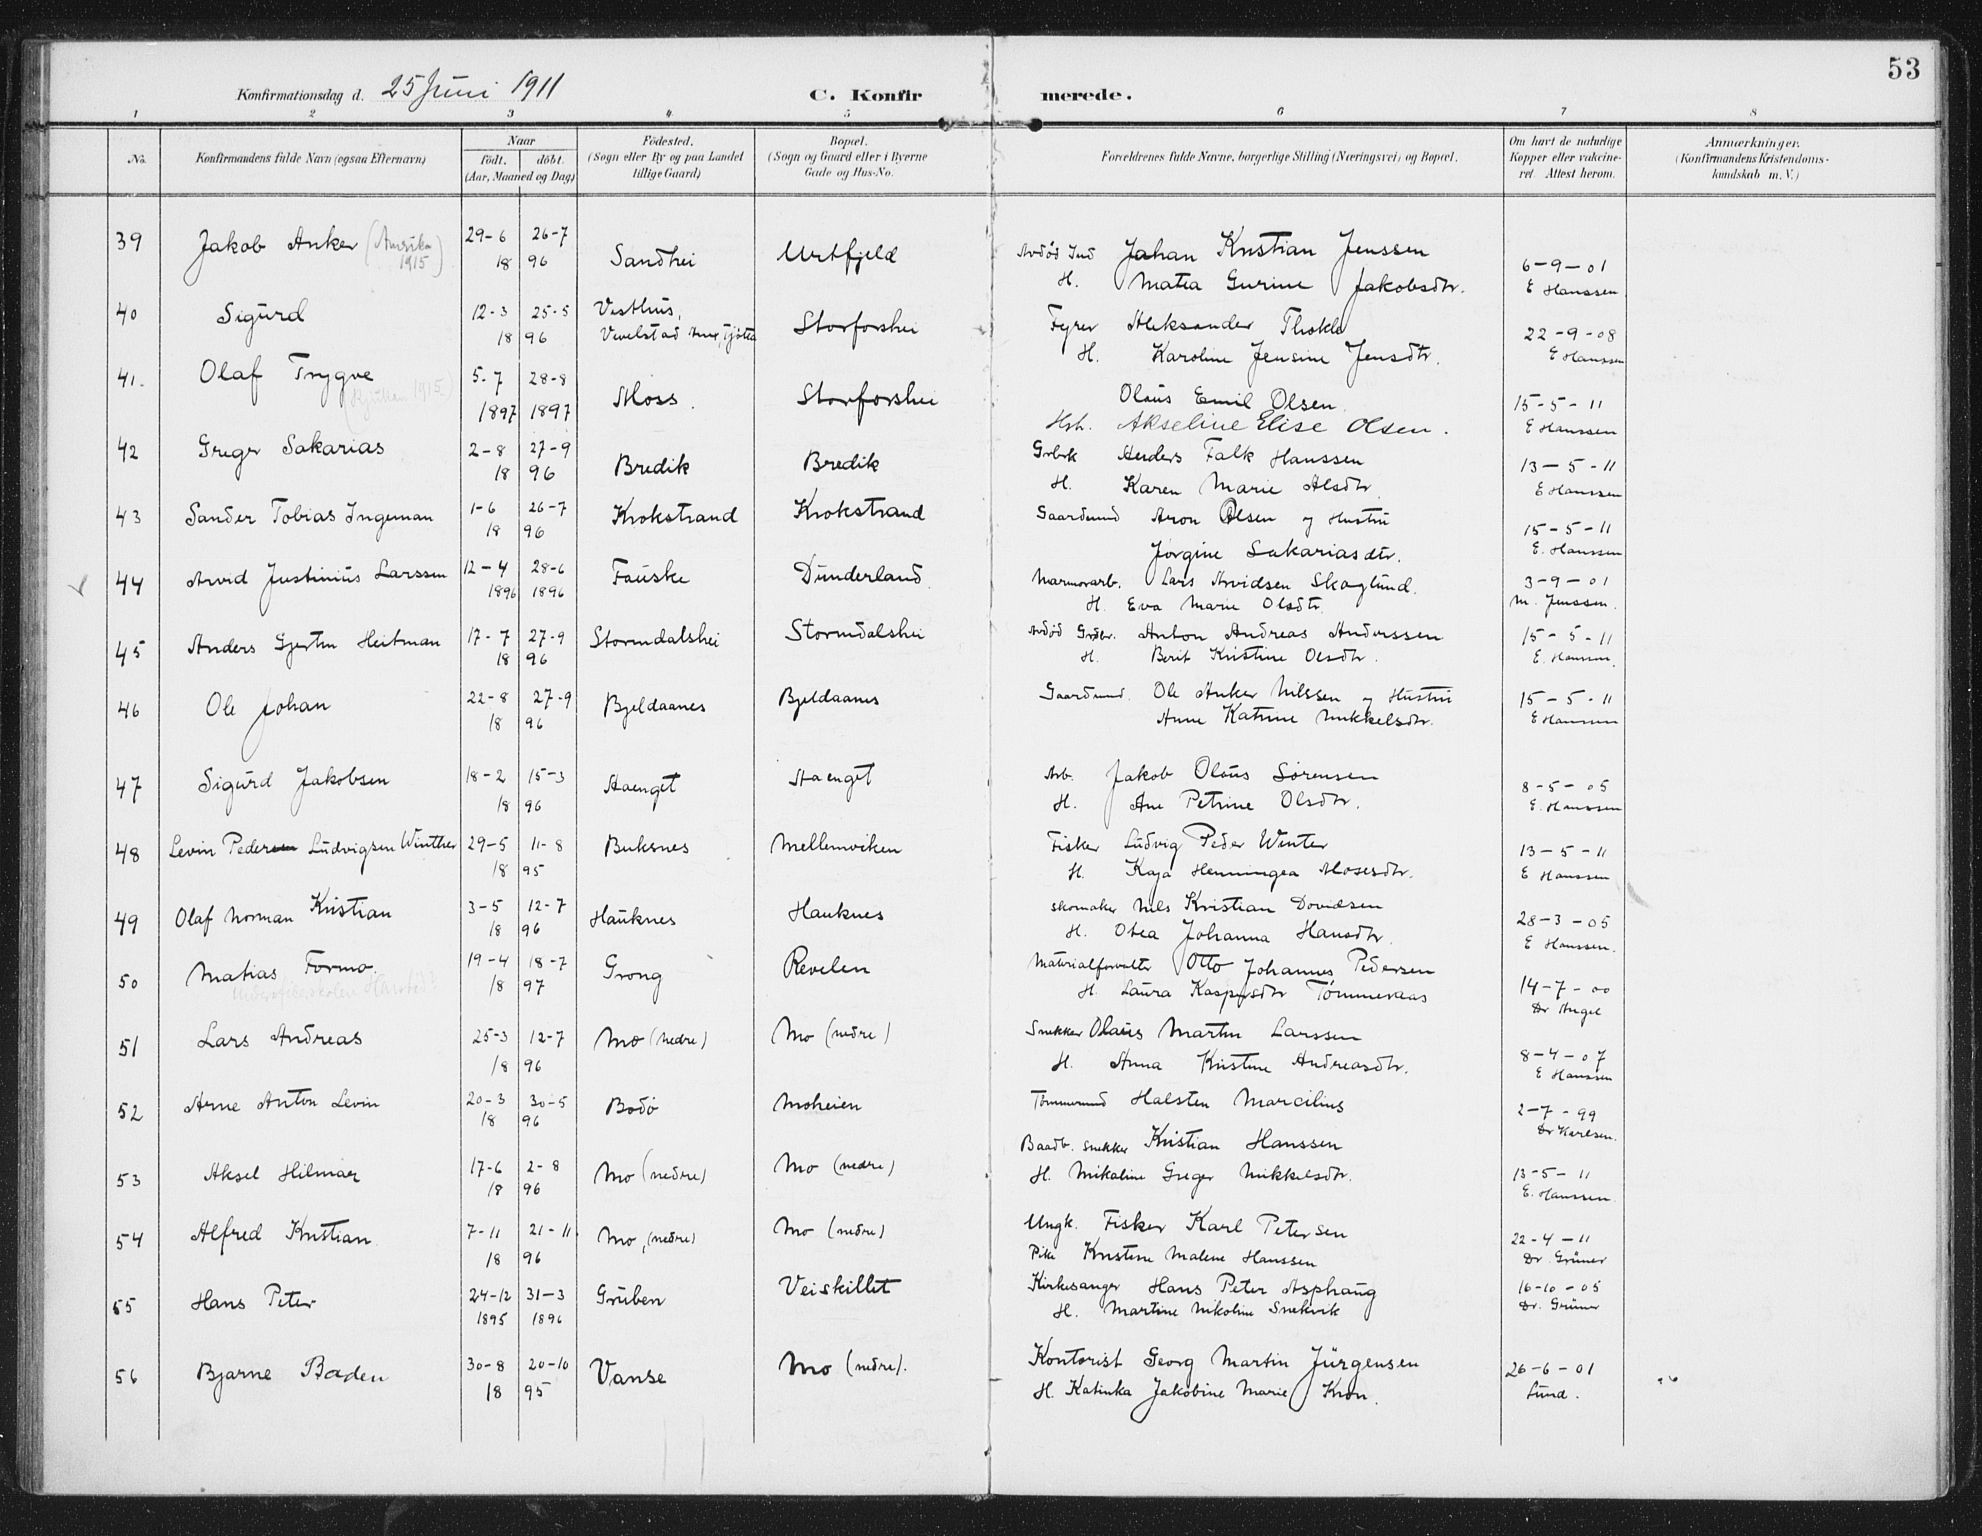 53
Konfirmationsdag d. 25 Juni 1911 C. Konfirmerede.
1 2 3 4 5 6 7 8
No. Konfirmandens fulde Navn (ogsaa Efternavn) Naar født. døbt. (Aar, Maaned og Dag) Fødested. (Sogn eller By og paa Landet tillige Gaard) Bopæl. (Sogn og Gaard eller i Byerne Gade og Hus-No. Forældrenes fulde Navne, borgerlige Stilling (Næringsvei) og Bopæl. Om havt de naturlige Kopper eller vakcineret. Attest herom. Anmærkninger. (Konfirmandens Kristendomskundskab m. V.)
39 Jakob Anker (Amerika 1915) 29-6 26-7 Sandhei Urtfjeld Avdød Ind Johan Kristian Jenssen 6-9-01
18 96 H. Matea Gurine Jakobsdtr. E Hanssen
40 Sigurd 12-3 25-5 Vesthus, Storforshei Fyrer Aleksander 22-9-08
18 96 Vevelstad Tjøtta H. Karoline Jensine Jensdtr. E Hanssen
41. Olaf Trygve 5-7 28-8 Moss. Storforshei Olaus Emil Olsen 15-5-11
1915) 1897 1897 Hst. Akseline Elise Olsen. E Hanssen
42 Greger Sakarias 2-8 27-9 Bredik Bredik Grbrk Anders Falk Hanssen 13-5-11
18 96 H. Karen Marie Alsdtr. E Hanssen
43 Sander Tobias Ingeman 1-6 26-7 Krokstrand Krokstrand Gaardmand Aron Olsen og Hustru 15-5-11
18 96 Jørgine Sakariasdtr. E. Hanssen
44 Arvid Justinius Larssen 12-4 28-6 Fauske Dunderland. Marmorarb. Lars Arvidsen Skoglund. 3-9-01
1896 1896 H. Eva Marie Olsdtr. M. Jenssen.
45 Anders Gjertin Heitman 17-7 27-9 Stormdalshei Stormdalshei Avdød Grdbr. Anton Andreas Anderssen 15-5-11
18 96 H. Berit Kristine Olsdtr. E. Hanssen.
46 Ole Johan 22-8 27-9 Bjeldaanes Bjeldaanes Gaardmand. Ole Anker Nilssen og Hustru 15-5-11
18 96 Anne Katrine Mikkelsdtr. E Hanssen
47 Sigurd Jakobsen 18-2 15-3 Haenget Haenget Arb. Jakob Olaus Sørensen 8-5-05
18 96 H. Ane Petrine Olsdtr. E. Hanssen
48 Levin Pedersen Ludvigsen Winther 29-5 11-8 Buksnes Mellemviken Fisker Ludvig Peder Winter 13-5-11
18 95 H. Kaja Henningea Mosesdtr. E Hanssen
49 Olaf Norman Kristian 3-5 12-7 Hauknes Hauknes Skomaker Nils Kristian Dovidsen 28-3-05
18 96 H. Otea Johanna Hansdtr. E Hanssen.
50 Matias Formo. 19-4 18-7 Grong Revelen Materialforvalter Otto Johannes Pedersen 14-7-00
18 97 H. Laura Kaspersdtr Tømmeraas Dr Angel
51 Lars Andreas 25-3 12-7 Mo (nedre) Mo (nedre) Snekker Olaus Martin Larssen 8-4-07
18 96 H. Anna Kristine Andreasdtr. E Hanssen
52 Arne Anton Levin 20-3 30-5 Bodø Moheien Tømmermand Halsten Marcilius 2-7-99
18 96 Dr Karlsen.
53 Aksel Hilmar 17-6 2-8 Mo (nedre) Mo (nedre) Baadb. Snekker Kristian Hanssen 13-5-11
18 96 H. Mikaline Greger Mikkelsdtr. E. Hanssen
54 Alfred Kristian 7-11 21-11 Mo, (nedre) Mo (nedre) Ungk. Fisker Karl Petersen 22-4-11
18 96 Pike Kristine Malene Hanssen Dr. Grüner
55 Hans Peter 24-12 31-3 Gruben Veiskillet Kirkesanger Hans Peter Asphaug 16-10-05
1895 1896 H. Martine Nikoline Snekvik Dr. Grüner
56 Bjarne Baden 30-8 20-10 Vanse Mo (nedre). Kontorist Georg Martin Jürgensen 26-6-01
18 95 H. Katinka Jakobine Marie Kron. Lund.